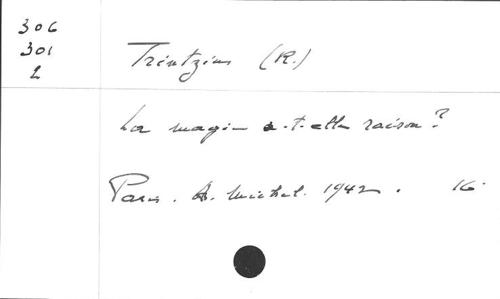 306
301
2
Trintzius (R.)
La magie a-t-elle raison?
Paris. A. Michel. 1942. 16